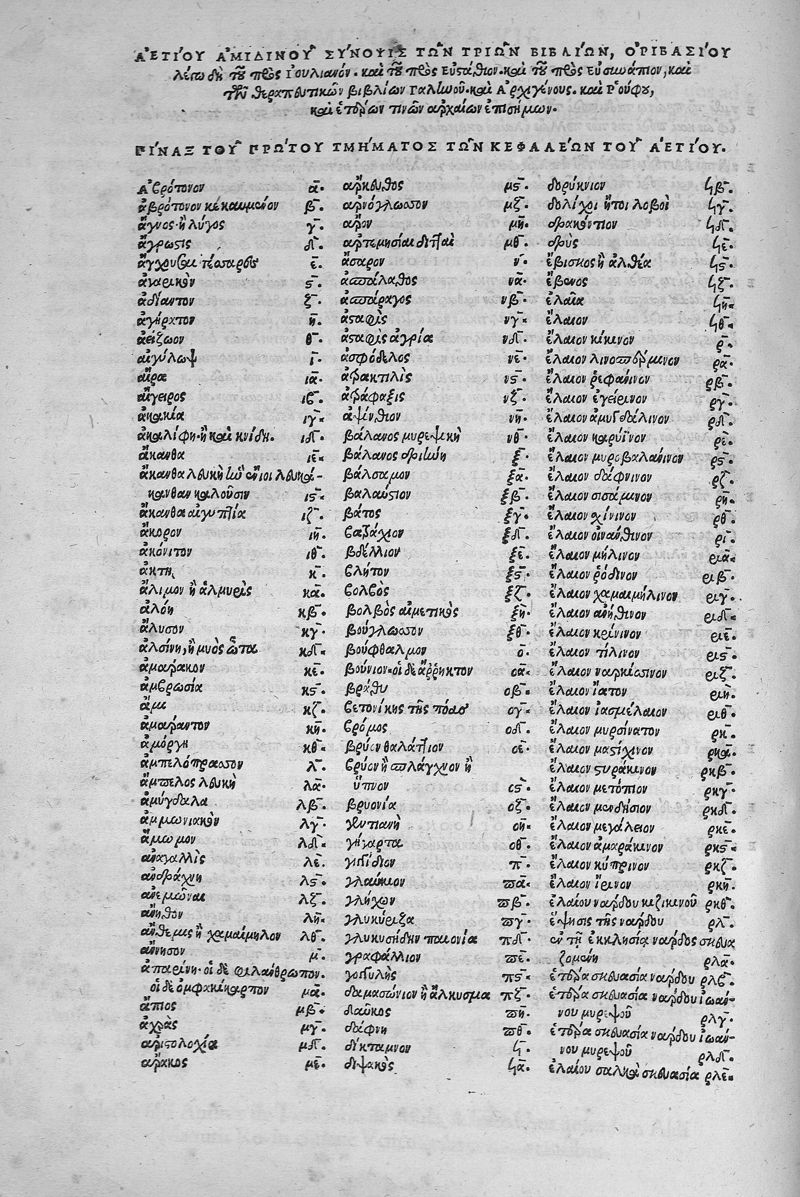 ΑΕΤΙΟΥ ΑΜΙΔΙΝΟΥ ΣΥΝΟΨΙΣ ΤΩΝ ΤΡΙΩΝ ΒΙΒΛΙΩΝ, ΟΡΙΒΑΣΙΟΥ
λέγω δὴ τοῦ πρὸς Ἰουλιανόν. καὶ τοῦ πρὸς Εὐστάθιον. καὶ τοῦ πρὸς Εὐνάπιον, καὶ
τῶν θεραπευτικῶν βιβλίων Γαλινοῦ. καὶ Ἀρχιγένους. καὶ Ῥούφου,
καὶ ἑτέρων τινῶν ἀρχαίων ἐπισήμων.
ΠΙΝΑΞ ΤΟΥ ΠΡΩΤΟΥ ΤΜΗΜΑΤΟΣ ΤΩΝ ΚΕΦΑΛΕΩΝ ΤΟΥ ΑΕΤΙΟΥ.
Ἀβρότονον α.
ἀβρότονον κεκαυμένον β.
ἄγνος ἢ λύγος γ.
ἄγρωστις δ.
ἄγχουσαι τέσσαρες ε.
ἀγαρικὸν ϛ.
ἀδίαντον ζ.
ἀγήρατον η.
ἀείζωον θ.
αἰγίλωψ ι.
αἶρα ια.
αἴγειρος ιβ.
ἀκακία ιγ.
ἀκαλύφη. ἢ καὶ κνίδη. ιδ.
ἄκανθα ιε.
ἄκανθα λευκὴ ἣν ἔνιοι λευκά-
κανθαν καλοῦσιν ιϛ.
ἄκανθα αἰγυπτία ιζ.
ἄκορον ιη.
ἀκόνιτον ιθ.
ἀκτῆ κ.
ἅλιμον ἢ ἁλμυρὶς κα.
ἀλόη κβ.
ἄλυσον κγ.
ἀλσίνη, ἢ μυὸς ὦτα κδ.
ἀμαρακον κε.
ἀμβρωσία κϛ.
ἄμι κζ.
ἀμάραντον κη.
ἀμόργη κθ.
ἀμπελόπρασον λ.
ἄμπελος λευκὴ λα.
ἀμύγδαλα λβ.
ἀμμωνιακὸν λγ.
ἄμωμον λδ.
ἀναγαλλὶς λε.
ἀνδράχνη λϛ.
ἀνεμῶναι λζ.
ἄνηθον λη.
ἄνθεμις ἢ χαμαίμηλον λθ.
ἄννησον μ.
ἀπαρίνη. οἱ δὲ φιλάνθρωπον.
οἱ δὲ ὀμφακόκαρπον μα.
ἄπιος μβ.
ἄχρας μγ.
ἀριστολοχία μδ.
ἄρακος με.
ἄρκευθος μϛ.
ἀρνόγλωσσον μζ.
ἄρον μη.
ἀρτεμησίαι διτταὶ μθ.
ἄσαρον ν.
ἀσπάλαθος να.
ἀσπάραγος νβ.
ἀσταφὶς νγ.
ἀσταφὶς ἀγρία νδ.
ἀσφόδελος νε.
ἀτρακτυλὶς νϛ.
ἀτράφαξις νζ.
ἀψίνθιον νη.
βάλανος μυρεψικὴ νθ.
βάλανος δρυΐνη ξ.
βάλσαμον ξα.
βαλαύστιον ξβ.
βάτος ξγ.
βατράχιον ξδ.
βδέλλιον ξε.
βλῆτον ξϛ.
βολβὸς ξζ.
βολβὸς αἱμετικὸς ξη.
βούγλωσσον ξθ.
βούφθαλμον ο.
βούνιον. οἱ δὲ ἄρρηκτον οα.
βράθυ οβ.
βετονίκης τῆς πόας ογ.
βρόμος οδ.
βρύον θαλάττιον οε.
βρύον ἢ σπλάγχνον ἢ
ὕπνον οϛ.
βρυονία οζ.
γεντιανὴ οη.
γίγαρτα οθ.
γιγίδιον π.
γλαύκιον πα.
γλήχων πβ.
γλυκύριζα πγ.
γλυκυσήδην παιονία πδ.
γραφάλλιον πε.
γογγυλὶς πϛ.
δαμασώνιον ἢ ἄλκυσμα πζ.
δαῦκος πη.
δάφνη πθ.
δίκταμνον ϟ.
διψακὸς ϟα.
δορύκνιον ϟβ.
δολίχοι ἤτοι λοβοὶ ϟγ.
δρακόντιον ϟδ.
δρῦς ϟε.
ἐβίσκος ἢ ἀλθέα ϟϛ.
ἔβενος ϟζ.
ἐλαῖα ϟη.
ἔλαιον ϟθ.
ἔλαιον κίκινον ρ.
ἔλαιον λινοσπέρμινον ρα.
ἔλαιον ῥεφάνινον ρβ.
ἔλαιον ἐγείρινον ργ.
ἔλαιον ἀμυγδάλινον ρδ.
ἔλαιον καρύϊνον ρε.
ἔλαιον μυροβαλάνινον ρϛ.
ἔλαιον δάφνινον ρζ.
ἔλαιον σισάμινον ρη.
ἔλαιον σχίνινον ρθ.
ἔλαιον οἰνάνθινον ρι.
ἔλαιον μήλινον ρια.
ἔλαιον ῥόδινον ριβ.
ἔλαιον χαμαιμήλινον ριγ.
ἔλαιον ἀνήθινον ριδ.
ἔλαιον κρίνινον ριε.
ἔλαιον τίλινον ριϛ.
ἔλαιον ναρκίσσινον ριζ.
ἔλαιον ἴατον ριη.
ἔλαιον ἰασμέλαιον ριθ.
ἔλαιον μυρσίνατον ρκ.
ἔλαιον μαστίχινον ρκα.
ἔλαιον στυράκινον ρκβ.
ἔλαιον μετόπιον ρκγ.
ἔλαιον μενδήσιον ρκδ.
ἔλαιον μεγάλειον ρκε.
ἔλαιον ἀμαράκινον ρκϛ.
ἔλαιον κύπρινον ρκζ.
ἔλαιον ἴρινον ρκη.
ἐλαίου νάρδου κιζικινοῦ ρκθ.
ἕψησις τῆς νάρδου ρλ.
ἐν τῇ ἐκκλησίᾳ νάρδος σκευα
ζομένη ρλα.
ἑτέρα σκευασία νάρδου ρλβ.
ἑτέρα σκευασία νάρδου ἰωάν-
νου μυρεψοῦ ρλγ.
ἑτέρα σκευασία νάρδου ἰωάν-
νου μυρεψοῦ ρλδ.
ἐλαίου σαλκὰ σκευασία ρλε.